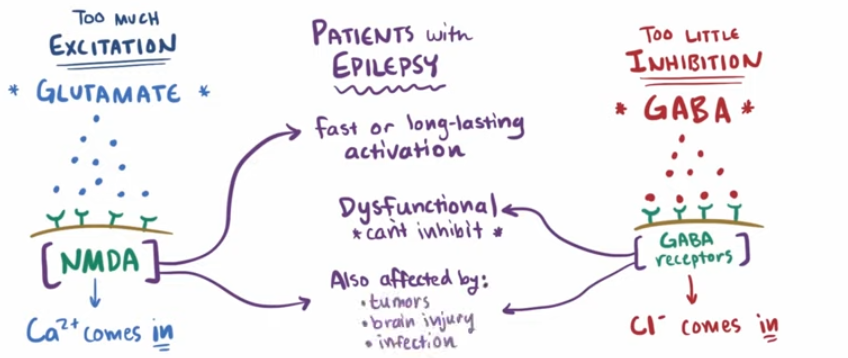 TOO MUCH
EXCITATION
* GLUTAMATE *
[NMDA]
Ca²⁺ comes in
PATIENTS with
EPILEPSY
fast or long-lasting
activation
Dysfunctional
*can't inhibit*
Also affected by:
• tumors
• brain injury
• infection
TOO LITTLE
INHIBITION
* GABA *
[GABA
receptors]
Cl⁻ comes in